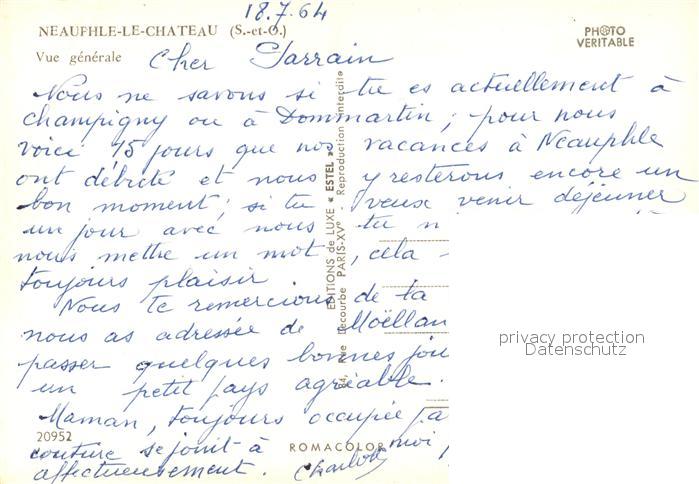 18.7.64
NEAUFHLE-LE-CHATEAU (S.-et-O.)
Vue générale
PHOTO
VERITABLE
Cher Parrain
Nous ne savons si tu es actuellement à
champigny ou à Dommartin ; pour nous
voici 15 jours que nos vacances à Neauphle
ont débuté et nous y resterons encore un
bon moment ; si tu veux venir déjeuner
un jour avec nous tu n
nous mettre un mot, cela
toujours plaisir
Nous te remercions de ta
nous as adressée de Moëllan
passer quelques bonnes jou
un petit pays agréable.
Maman, toujours occupée à
couture se joint à moi,
affectueusement. Charlotte
20952
ROMACOLOR
EDITIONS de LUXE « ESTEL »
84, Rue Lecourbe PARIS-XVe - Reproduction interdite
privacy protection
Datenschutz